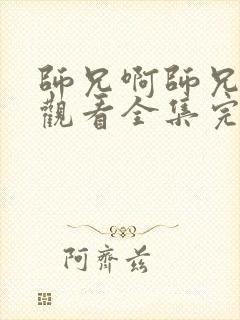 師兄啊師兄
觀看全集完
阿齊茲